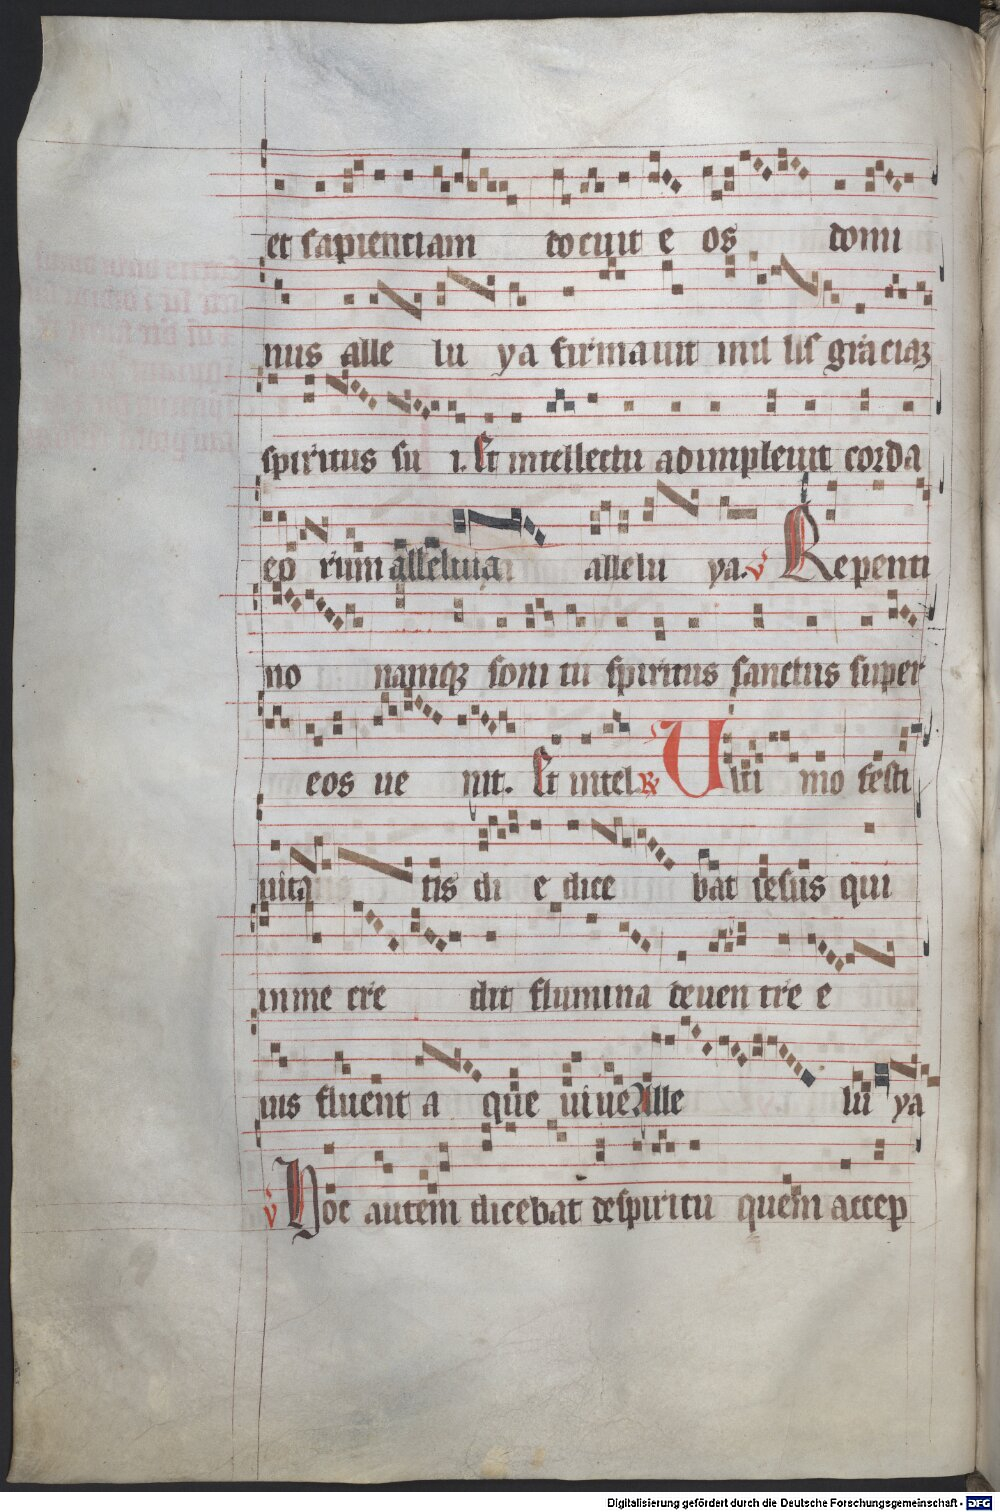 et sapientiam docuit e os domi
nus alle lu ya firmauit in il lis graciaꝫ
spiritus su i. Et intellectu adimpleuit corda
eo rum alleluia allelu ya. v Repenti
no namqꝫ soni tu spiritus sanctus super
eos ue nit. Et intel. ℟ Ulti mo festi
uita tis di e dice bat iesus qui
in me cre dit flumina de uen tre e
ius fluent a que uiue Alle lu ya
v Hoc autem dicebat de spiritu quem accep
Digitalisierung gefördert durch die Deutsche Forschungsgemeinschaft - DFG